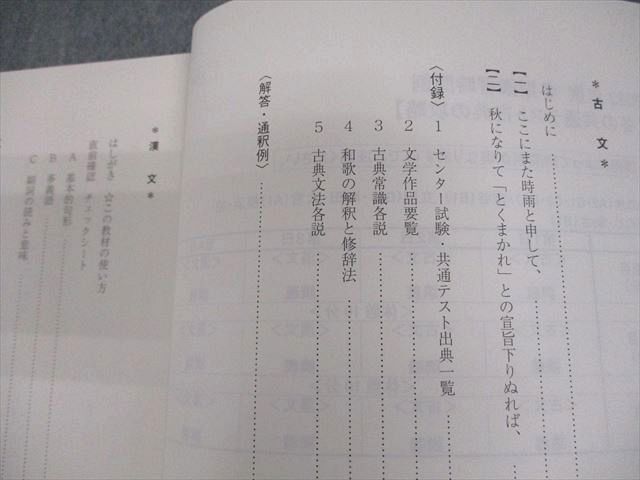 ＊古文＊
はじめに……………………
【一】ここにまた時雨と申して、……………………
【二】秋になりて「とくまかれ」との宣旨下りぬれば、……
〈付録〉1 センター試験・共通テスト出典一覧……
2 文学作品要覧……………………
3 古典常識各説……………………
4 和歌の解釈と修辞法……………………
5 古典文法各説……………………
〈解答・通釈例〉……………………
＊漢文＊
はしがき ☆この教材の使い方
直前確認 チェックシート
A 基本的句形……………………
B 多義語……………………
C 副詞の読みと意味……………………